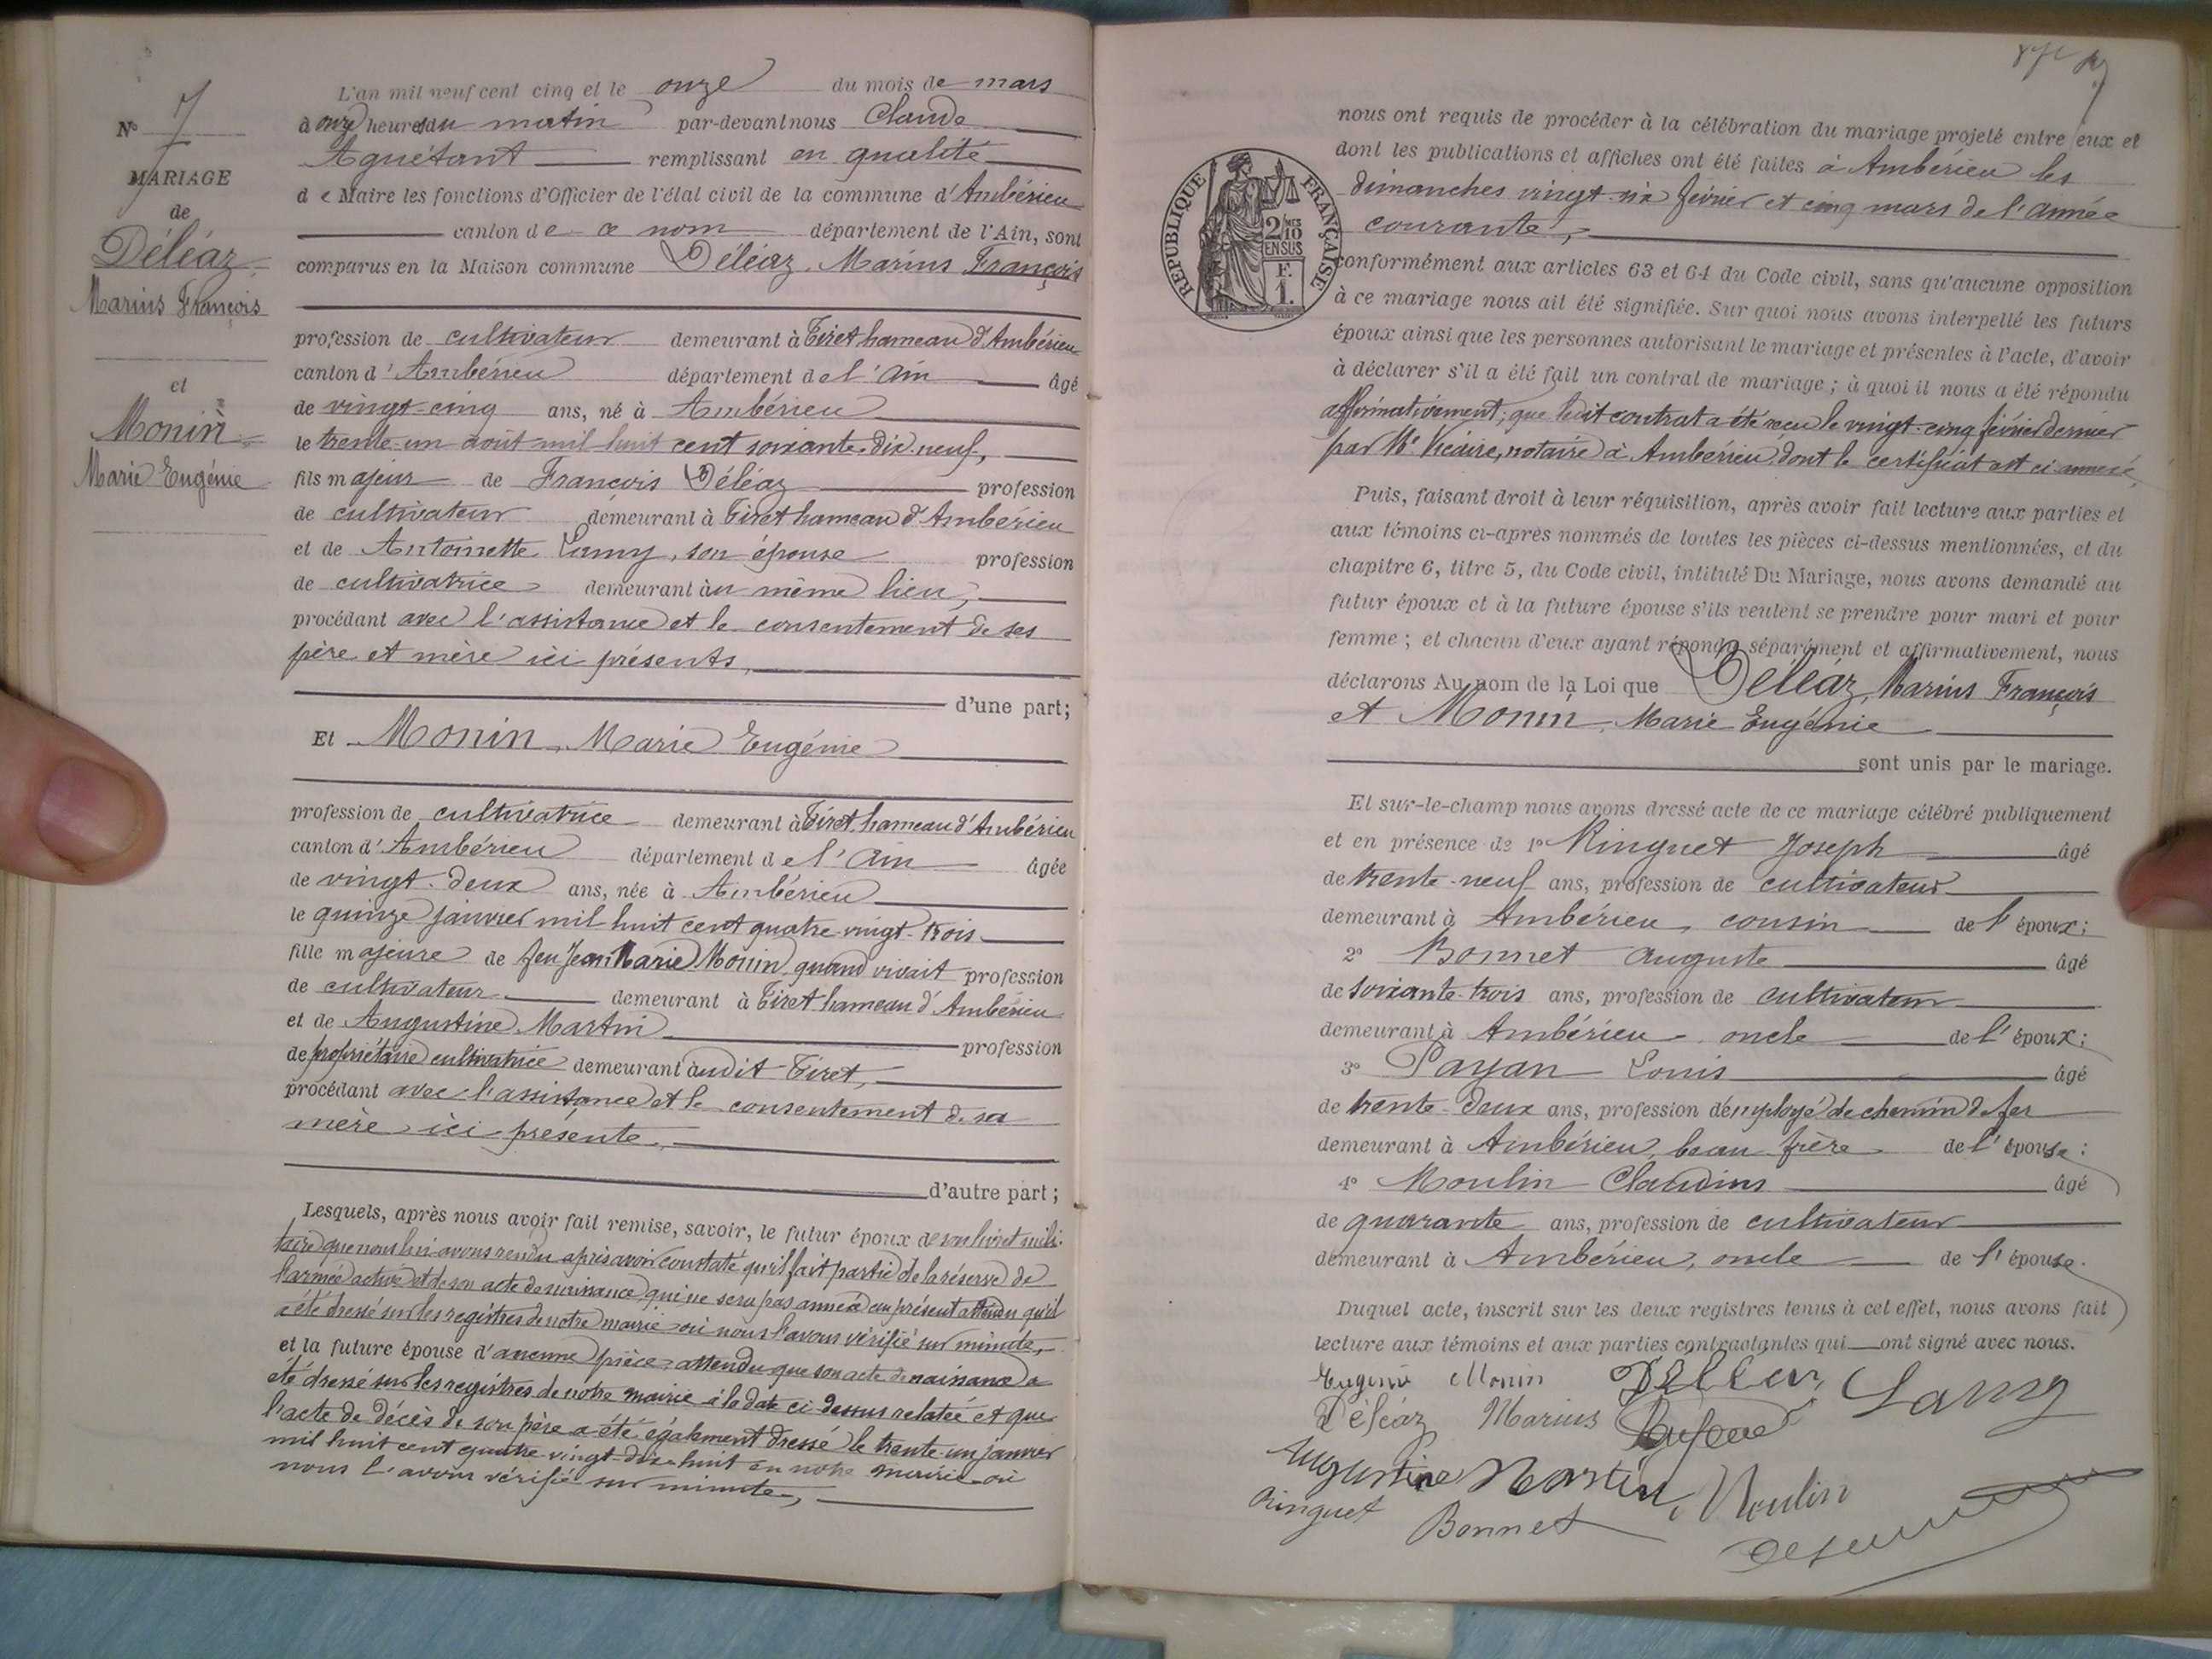 N° 7
MARIAGE
de
Déléaz
Marius François
et
Monin
Marie Eugénie
L'an mil neuf cent cinq et le onze du mois de mars
à onze heures du matin par-devant nous Claude
Aguétant remplissant en qualité
de Maire les fonctions d'Officier de l'état civil de la commune d'Ambérieu
canton de ce nom département de l'Ain, sont
comparus en la Maison commune Déléaz, Marius François
profession de cultivateur demeurant à Tiret hameau d'Ambérieu
canton d'Ambérieu département de l'Ain âgé
de vingt-cinq ans, né à Ambérieu
le trente-un août mil huit cent soixante-dix-neuf,
fils majeur de François Déléaz profession
de cultivateur demeurant à Tiret hameau d'Ambérieu
et de Antoinette Lamy, son épouse profession
de cultivatrice demeurant au même lieu,
procédant avec l'assistance et le consentement de ses
père et mère ici présents,
d'une part;
Et Monin, Marie Eugénie
profession de cultivatrice demeurant à Tiret, hameau d'Ambérieu
canton d'Ambérieu département de l'Ain âgée
de vingt-deux ans, née à Ambérieu
le quinze janvier mil huit cent quatre-vingt-trois
fille majeure de feu Jean Marie Monin, quand vivait profession
de cultivateur demeurant à Tiret hameau d'Ambérieu
et de Augustine Martin profession
de propriétaire cultivatrice demeurant audit Tiret,
procédant avec l'assistance et le consentement de sa
mère ici présente,
d'autre part;
Lesquels, après nous avoir fait remise, savoir, le futur époux de son livret mili-
taire que nous lui avons rendu après avoir constaté qu'il fait partie de la réserve de
l'armée active et de son acte de naissance qui ne sera pas annexé au présent attendu qu'il
a été dressé sur les registres de notre mairie où nous l'avons vérifié sur minute,
et la future épouse d'aucune pièce attendu que son acte de naissance a
été dressé sur les registres de notre mairie à la date ci-dessus relatée et que
l'acte de décès de son père a été également dressé le trente-un janvier
mil huit cent quatre-vingt-dix-huit en notre mairie où
nous l'avons vérifié sur minute,
nous ont requis de procéder à la célébration du mariage projeté entre eux et
dont les publications et affiches ont été faites à Ambérieu les
dimanches vingt-six février et cinq mars de l'année
courante,
RÉPUBLIQUE FRANÇAISE
2/10
EN SUS
F.
1.
conformément aux articles 63 et 64 du Code civil, sans qu'aucune opposition
à ce mariage nous ait été signifiée. Sur quoi nous avons interpellé les futurs
époux ainsi que les personnes autorisant le mariage et présentes à l'acte, d'avoir
à déclarer s'il a été fait un contrat de mariage; à quoi il nous a été répondu
affirmativement; que ledit contrat a été reçu le vingt-cinq février dernier
par Me Vicaire, notaire à Ambérieu, dont le certificat est ci-annexé.
Puis, faisant droit à leur réquisition, après avoir fait lecture aux parties et
aux témoins ci-après nommés de toutes les pièces ci-dessus mentionnées, et du
chapitre 6, titre 5, du Code civil, intitulé Du Mariage, nous avons demandé au
futur époux et à la future épouse s'ils veulent se prendre pour mari et pour
femme; et chacun d'eux ayant répondu séparément et affirmativement, nous
déclarons Au nom de la Loi que Déléaz, Marius François
et Monin, Marie Eugénie
sont unis par le mariage.
Et sur-le-champ nous avons dressé acte de ce mariage célébré publiquement
et en présence de 1° Ringuet Joseph âgé
de trente-neuf ans, profession de cultivateur
demeurant à Ambérieu, cousin de l'époux;
2° Bonnet Auguste âgé
de soixante-trois ans, profession de cultivateur
demeurant à Ambérieu, oncle de l'époux;
3° Payan Louis âgé
de trente-deux ans, profession d'employé de chemin de fer
demeurant à Ambérieu, beau-frère de l'épouse;
4° Moulin Claudius âgé
de quarante ans, profession de cultivateur
demeurant à Ambérieu, oncle de l'épouse.
Duquel acte, inscrit sur les deux registres tenus à cet effet, nous avons fait
lecture aux témoins et aux parties contractantes qui ont signé avec nous.
Eugénie Monin Lamy
Déléaz Marius
Augustine Martin, Moulin
Ringuet Bonnet